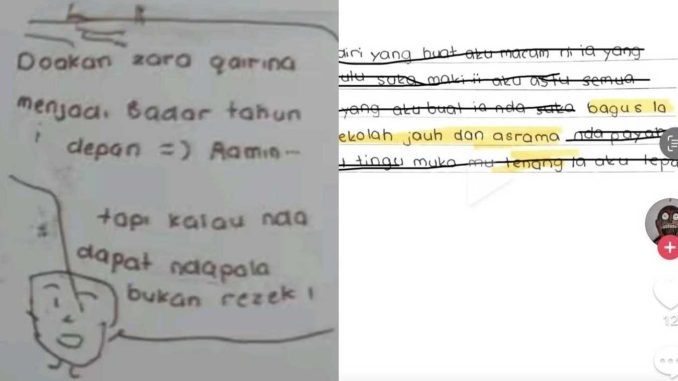 Doakan zara qairina
menjadi Badar tahun
depan =) Aamin...
tapi kalau nda
dapat ndapala
bukan rezeki
diri yang buat aku macam ni ia yang
ulu suka maki ii aku astu semua
yang aku buat ia nda suka bagus la
ekolah jauh dan asrama nda payah
u tingu muka mu tenang la aku lepa
12